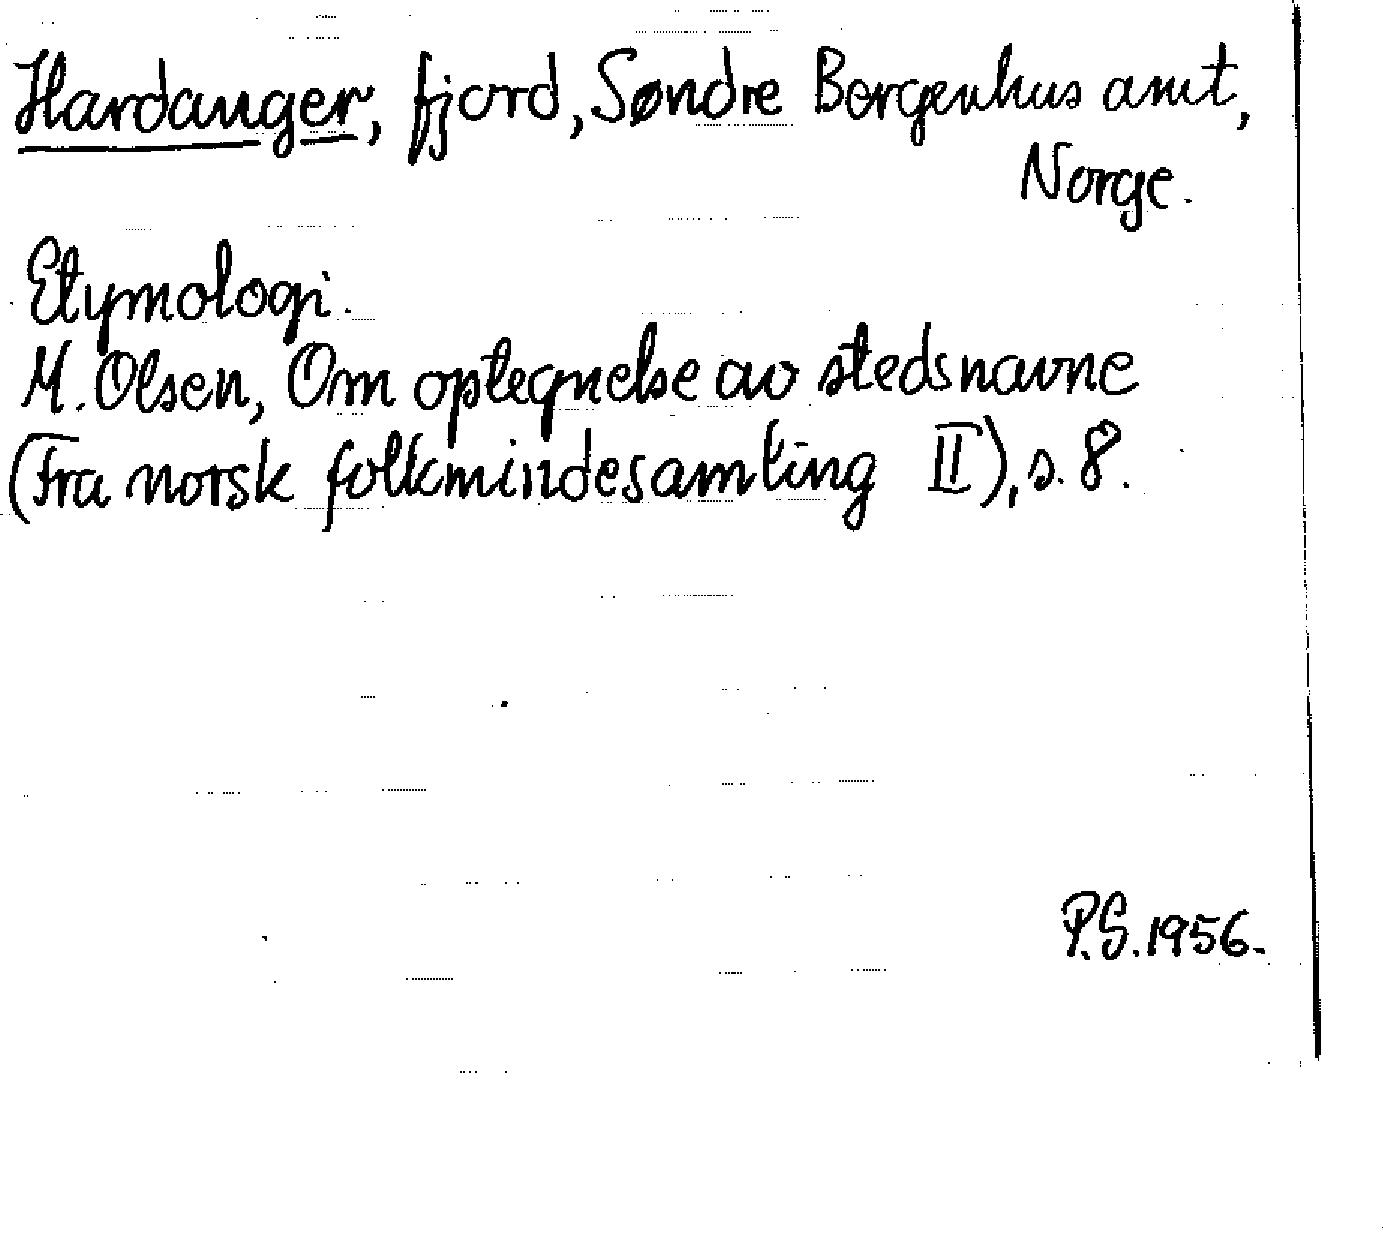 Hardanger, fjord, Søndre Bergenhus amt,
Norge.
Etymologi.
M. Olsen, Om optegnelse av stedsnavne
(Fra norsk folkmindesamling II), s. 8.
P.S. 1956.